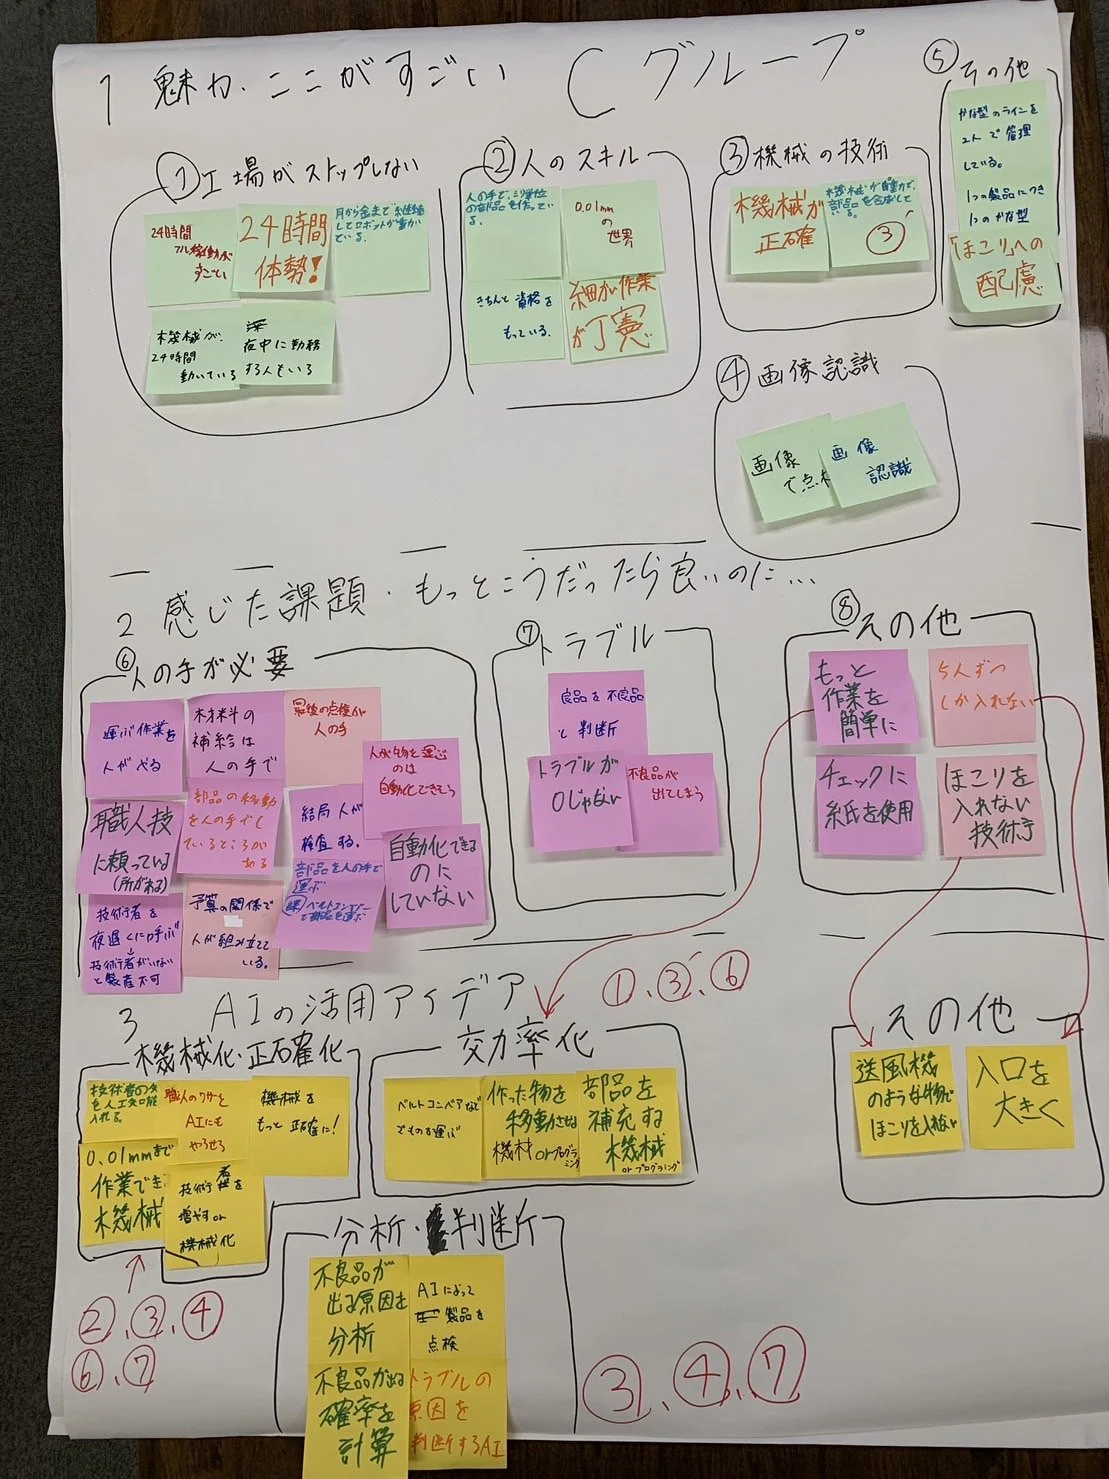 1 魅力・ここがすごい Cグループ
①工場がストップしない
24時間
フル稼働が
すごい
24時間
体勢!
月から金まで連続
してロボットが動いて
いる。
機械が、
24時間
動いている
夜中に勤務
する人もいる
②人のスキル
人の手で、ミリ単位
の部品を作っている
0.01mm
の
世界
きちんと資格を
もっている。
細かい作業
が丁寧
③機械の技術
機械が
正確
機械が自動で、
部品を合成して
いる。
③
④画像認識
画像
で点
画像
認識
⑤その他
かな型のラインを
2人で管理
している。
1つの製品につき
1つのかな型
「ほこり」への
配慮
2 感じた課題・もっとこうだったら良いのに...
⑥人の手が必要
運ぶ作業を
人がやる
材料の
補給は
人の手で
最後の点検が
人の手
人が物を運ぶ
のは
自動化できそう
職人技
に頼っている
(所がある)
部品の移動
を人の手でし
ているところが
ある
結局人が
検査する。
自動化できる
のに
していない
技術者を
夜遅くに呼ぶ
↓
技術者がいない
と製産不可
予算の関係で
人が組み立てて
いる。
部品を人の手で
運ぶ
ベルトコンベアー
で部品を運ぶ
⑦トラブル
良品を不良品
と判断
トラブルが
0じゃない
不良品が
出てしまう
⑧その他
もっと
作業を
簡単に
5人ずつ
しか入れない
チェックに
紙を使用
ほこりを
入れない
技術
3 AIの活用アイデア
①、③、⑥
機械化・正確化
技術者の矢
を人工知能
入れる。
職人のワザを
AIにも
やらせる
機械を
もっと正確に!
0.01mmまで
作業でき
機械
技術者を
増やすor
機械化
②、③、④
⑥、⑦
効率化
ベルトコンベアなど
でものを運ぶ
作った物を
移動させる
機材orプログラ
ミング
部品を
補充する
機械
orプログラミング
その他
送風機
のような物で
ほこりを入れない
入口を
大きく
分析・判断
不良品が
出る原因を
分析
AIによって
製品を
点検
不良品が出る
確率を
計算
トラブルの
原因を
判断するAI
③、④、⑦